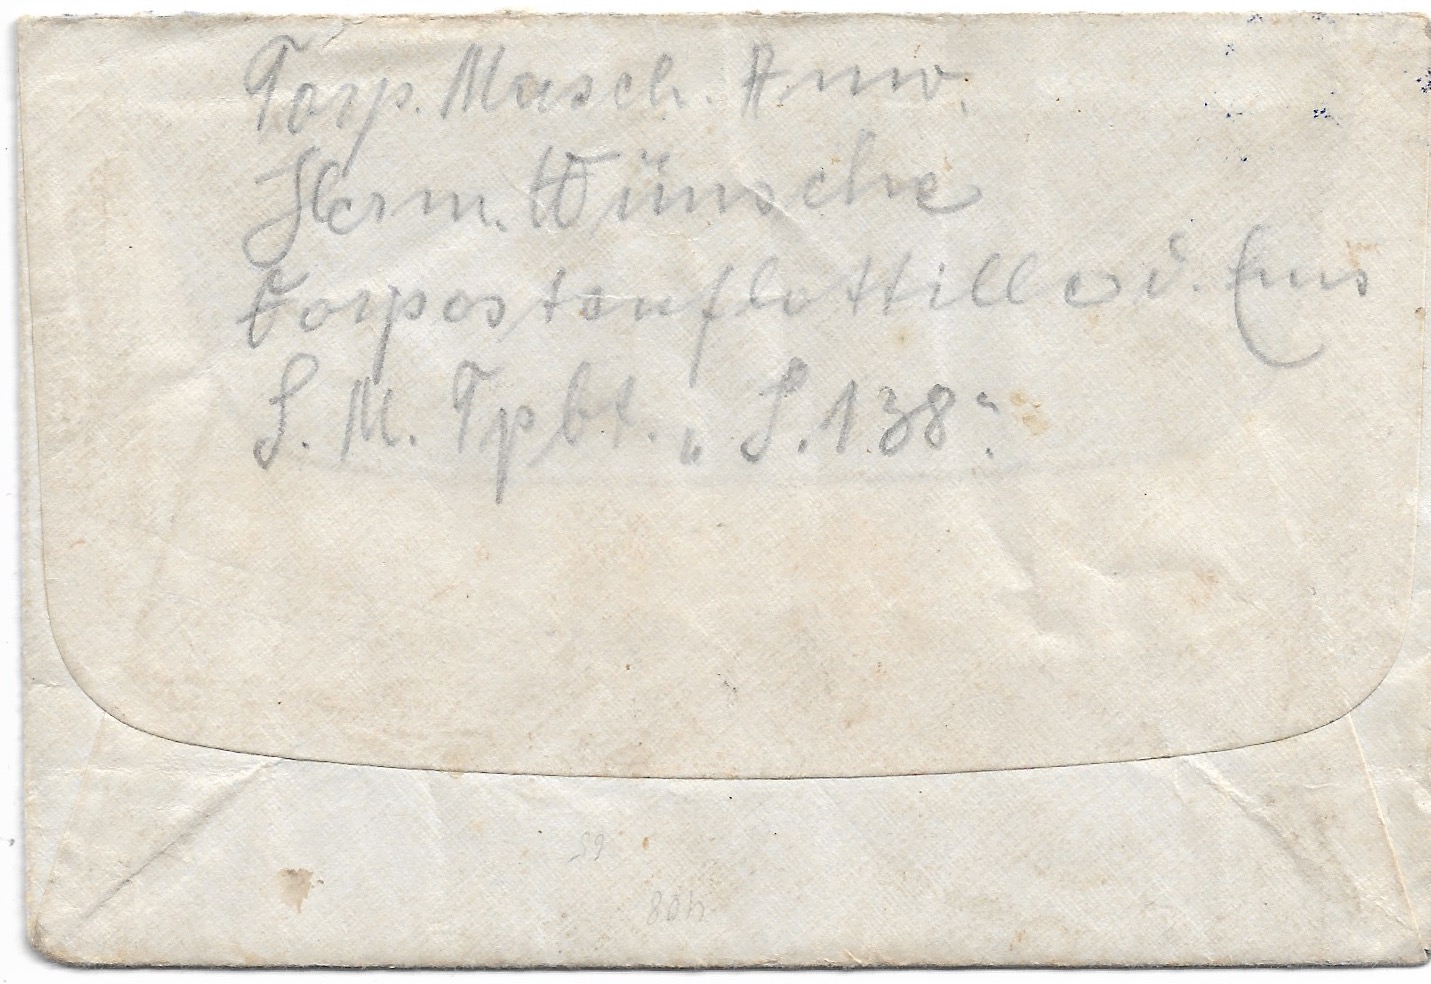 Torp. Masch. Anw.
Herm. Wünsche
Vorpostenflottille d. Ems
S. M. Tpbt. „S. 138“.
59
408